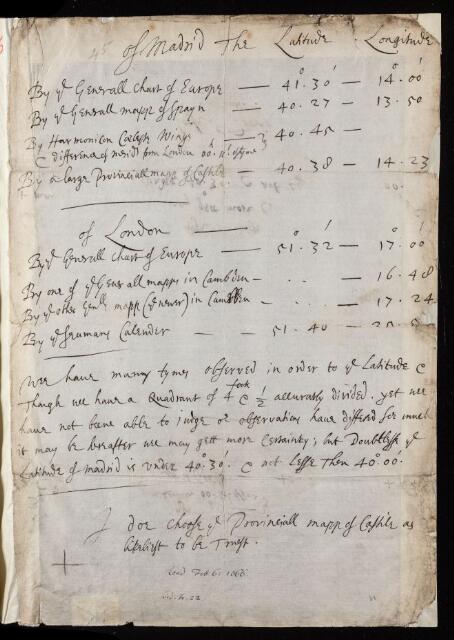 of Madrid The Latitude Longitude
By ye Generall Chart of Europe — 41°.30′ — 14°.00′
By ye Generall mapp of Spayn — 40.27 — 13.50
By Harmonicon Cœleste Wings — 40.45 —
difference of merid: from London
By a large Provinciall mapp of Castile — 40.38 — 14.23
of London
By ye Generall Chart of Europe — 51°.32′ — 17°.00′
By one of ye Generall mapps in Cambden — . . — 16.48
By ye other Genll mapp (ye newer) in Cambden . . — 17.24
By ye Seamans Calender — — 51.40 —
We have many tymes observed in order to ye Latitude &
Though we have a Quadrant of 4 foot & ½ accurately divided. yet we
have not bene able to judge or observations have differd soe much
it may be hereafter we may gett more Certeinty; but Doubtlesse ye
Latitude of madrid is under 40°.30′. & not lesse Then 40°.00′.
I doe choose ye Provinciall mapp of Castile as
likeliest to be Truest.
read Feb. 6: 1666.